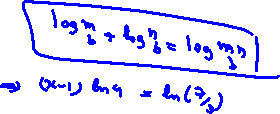 log_b^m + log_b^n = log_b^mn
⇒ (x-1) ln 9 = ln(7/3)